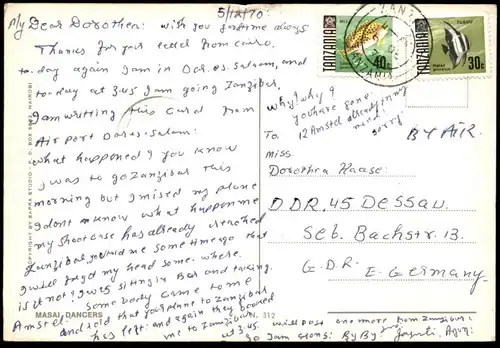 5/12/70:
My Dear Dorothea: with you goodtime always
Thanks for your letter from Cairo,
to-day again I am in Dar.es.salaam, and
to-day at 3.45 I am going Zanzibar,
I am writting this Card from
Air port Dar.es.Salam:
What happened? you know
I was to go Zanzibar this
morning but I missed my plane
I dont know what happen me
my shootcase has already reached
Zanzibar, you told me sometimes go that
I will forgot my head some where.
is it not? I was sitting in Bar and taking
Amstel. Some body came to me
and said that your plane to Zanzibar
has left: and again they booked
me to Zanzibar
at 3.45.
will post one more from Zanzibar:
So I am going: By By
why! why?
you have gone.
12 Amstel already in my
mind.
sorry
To
BY AIR.
MISS.
Dorothea Haase
DDR. 45 Dessau
Seb. Bachstr. 13.
G.D.R
E. Germany
MASAI DANCERS
N. 312
COPYRIGHT BY SAPRA STUDIO - P. O. BOX NAIROBI
TANZANIA
40c
TANZANIA
30c